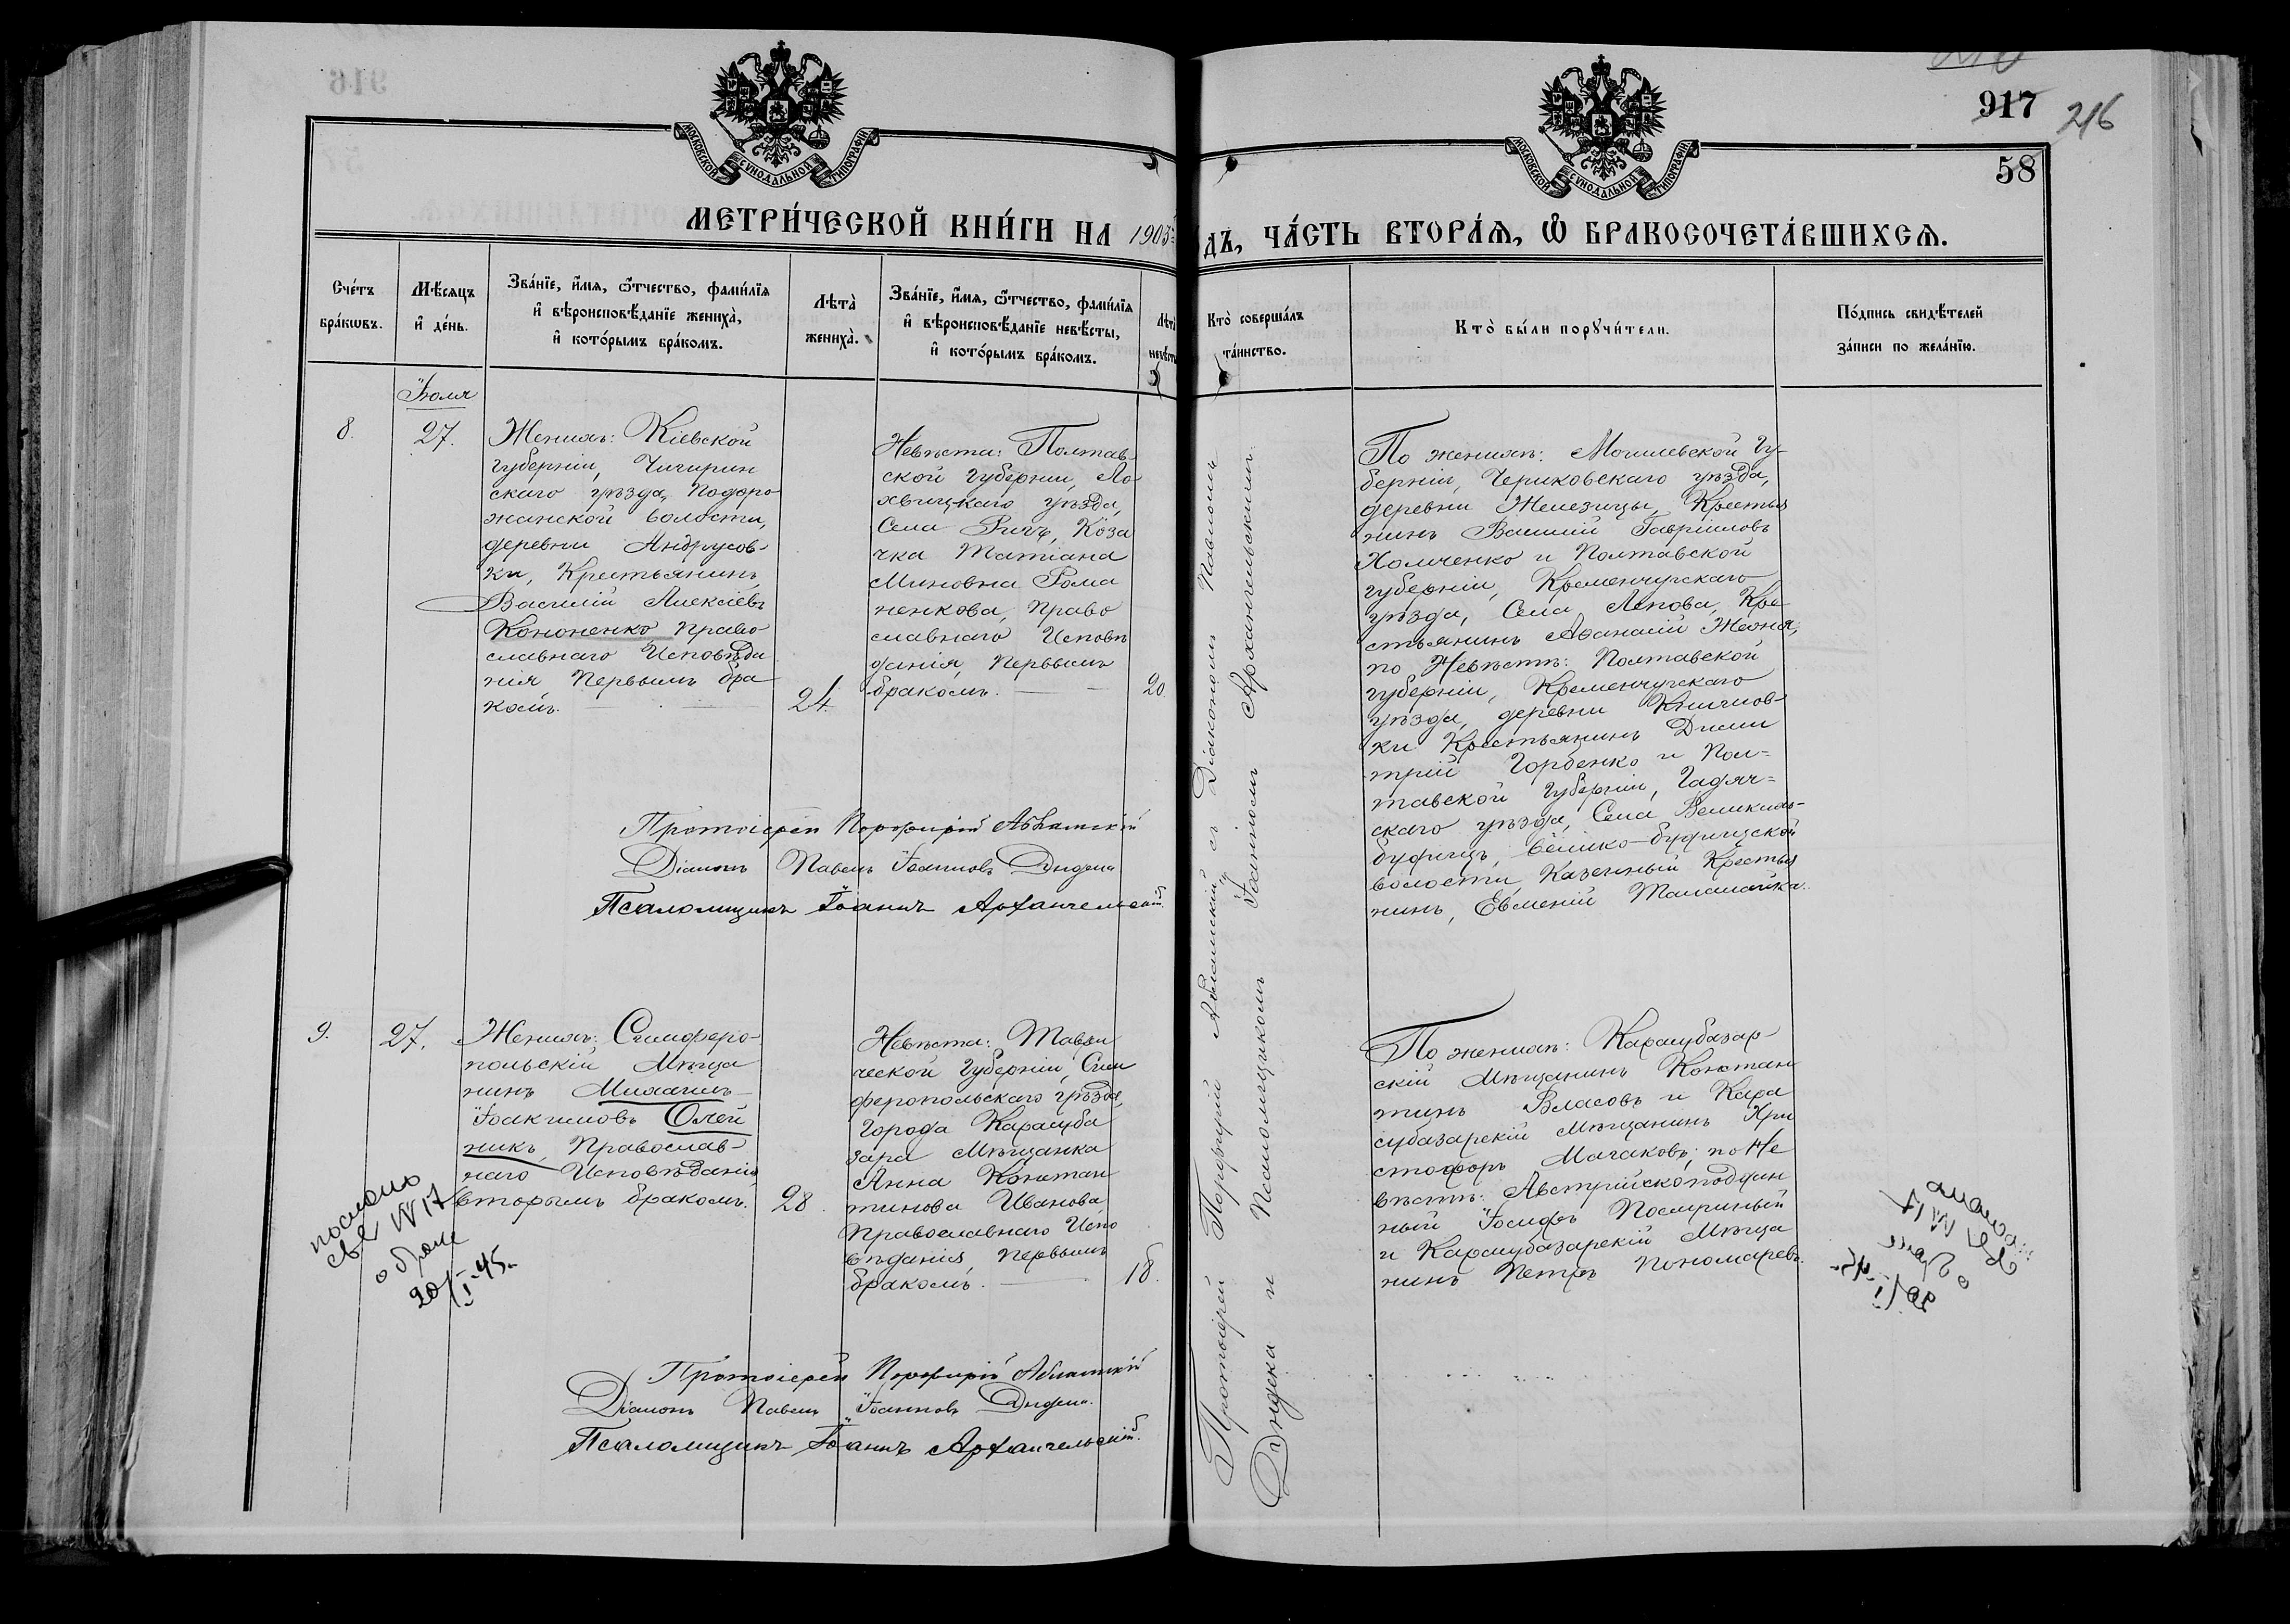 917
216
58
МОСКОВСКОЙ СѴНОДАЛЬНОЙ ТИПОГРАФІИ
МОСКОВСКОЙ СѴНОДАЛЬНОЙ ТИПОГРАФІИ
МЕТРИ́ЧЕСКОЙ КНИ́ГИ НА 1905
ДЪ, ЧА́СТЬ ВТОРА́Ѧ, Ѽ БРАКОСОЧЕТА́ВШИХСѦ.
Сче́тъ бра́кѡвъ.
Мѣ́сяцъ и҆ де́нь.
Зва́нїе, и҆́мя, ѻ҆́тчество, фами́лїя
и҆ вѣроисповѣ́данїе жениха̀,
и҆ кото́рымъ бра́комъ.
Лѣта̀
жениха̀.
Зва́нїе, и҆́мя, ѻ҆́тчество, фами́лїя
и҆ вѣроисповѣ́данїе невѣ́сты,
и҆ кото́рымъ бра́комъ.
Лѣта̀
невѣ́ст
Кто̀ соверша́лъ
та́инство.
Кто̀ бы́ли порꙋчи́тели.
По́дпись свидѣ́телей
за́писи по жела́нїю.
Іюля
8.
27.
Женихъ: Кіевской
губерніи, Чигирин
скаго уѣзда, Подоро
жанской волости,
деревни Андрусов-
ки, Крестьянинъ
Василій Алексіевъ
Кононенко, Право
славнаго Исповѣда
нія, Первымъ бра
комъ.
24.
Невѣста: Полтав-
ской губерніи, Ло
хвицкаго уѣзда,
Села Козa
чка Татіана
Миновна Рома
ненкова, Право
славнаго Исповѣ
данія, Первымъ
бракомъ.
20.
Протоіерей Порфирій Абламскій
Діаконъ Павелъ Іоанновъ Дидена
Псаломщикъ Іоаннъ Архангельскій.
Протоіерей Порфирій Абламскій съ Діакономъ Павломъ
Дидека и Псаломщикомъ Іоанномъ Архангельскимъ.
По женихѣ: Могилевской Гу-
берніи, Чериковскаго уѣзда,
деревни Железицы, Крестья
нинъ Василій Гавриловъ
Холченко и Полтавской
губерніи, Кременчугскаго
уѣзда, Села, Кре
стьянинъ Аѳанасій
по Невѣстѣ: Полтавской
губерніи, Кременчугскаго
уѣзда, деревни
ки Крестьянинъ Дими
трій Горбенко и Пол=
тавской Губерніи, Гадяч=
скаго уѣзда, Села Великихъ-
будищъ, Велико-будищской
волости Казенный Крестья
нинъ, Евменій
9.
27.
Женихъ: Симферо-
польскій Мѣща
нинъ Михаилъ
Іоакимовъ Олей
никъ, Православ-
наго Исповѣданія
вторымъ бракомъ.
28.
Невѣста: Таври
ческой Губерніи, Сим
феропольскаго уѣзда,
Города Карасуба
зара Мѣщанка
Анна Констан
тинова Иванова
Православнаго Испо
вѣданія, Первымъ
бракомъ.
18.
По женихѣ: Карасубазар
скій Мѣщанинъ Констан
тинъ Власовъ и Кара
субазарскій Мѣщанинъ Хри
стофоръ Магаковъ; по Не
вѣстѣ: Австрійскоподдан
ный Іосифъ
и Карасубазарскій Мѣща
нинъ Петръ Пономаревъ.
послано
св №17
о браке
20/I-45.
Протоіерей Порфирій Абламскій
Діаконъ Павелъ Іоанновъ Дидена
Псаломщикъ Іоаннъ Архангельскій.